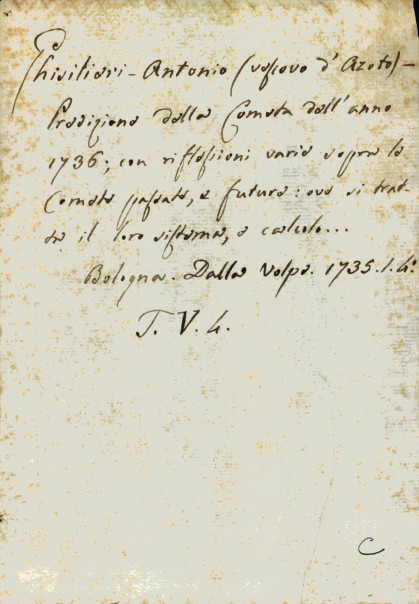 Ghisilieri - Antonio (vescovo d'Azoto) -
Predizione della Cometa dell'anno
1736; con riflessioni varie sopra le
Comete passate, e future: ove si trat-
ta il loro sistema, e calcolo...
Bologna. Dalla Volpe. 1735. 1. 4:
T. V. 4.
C